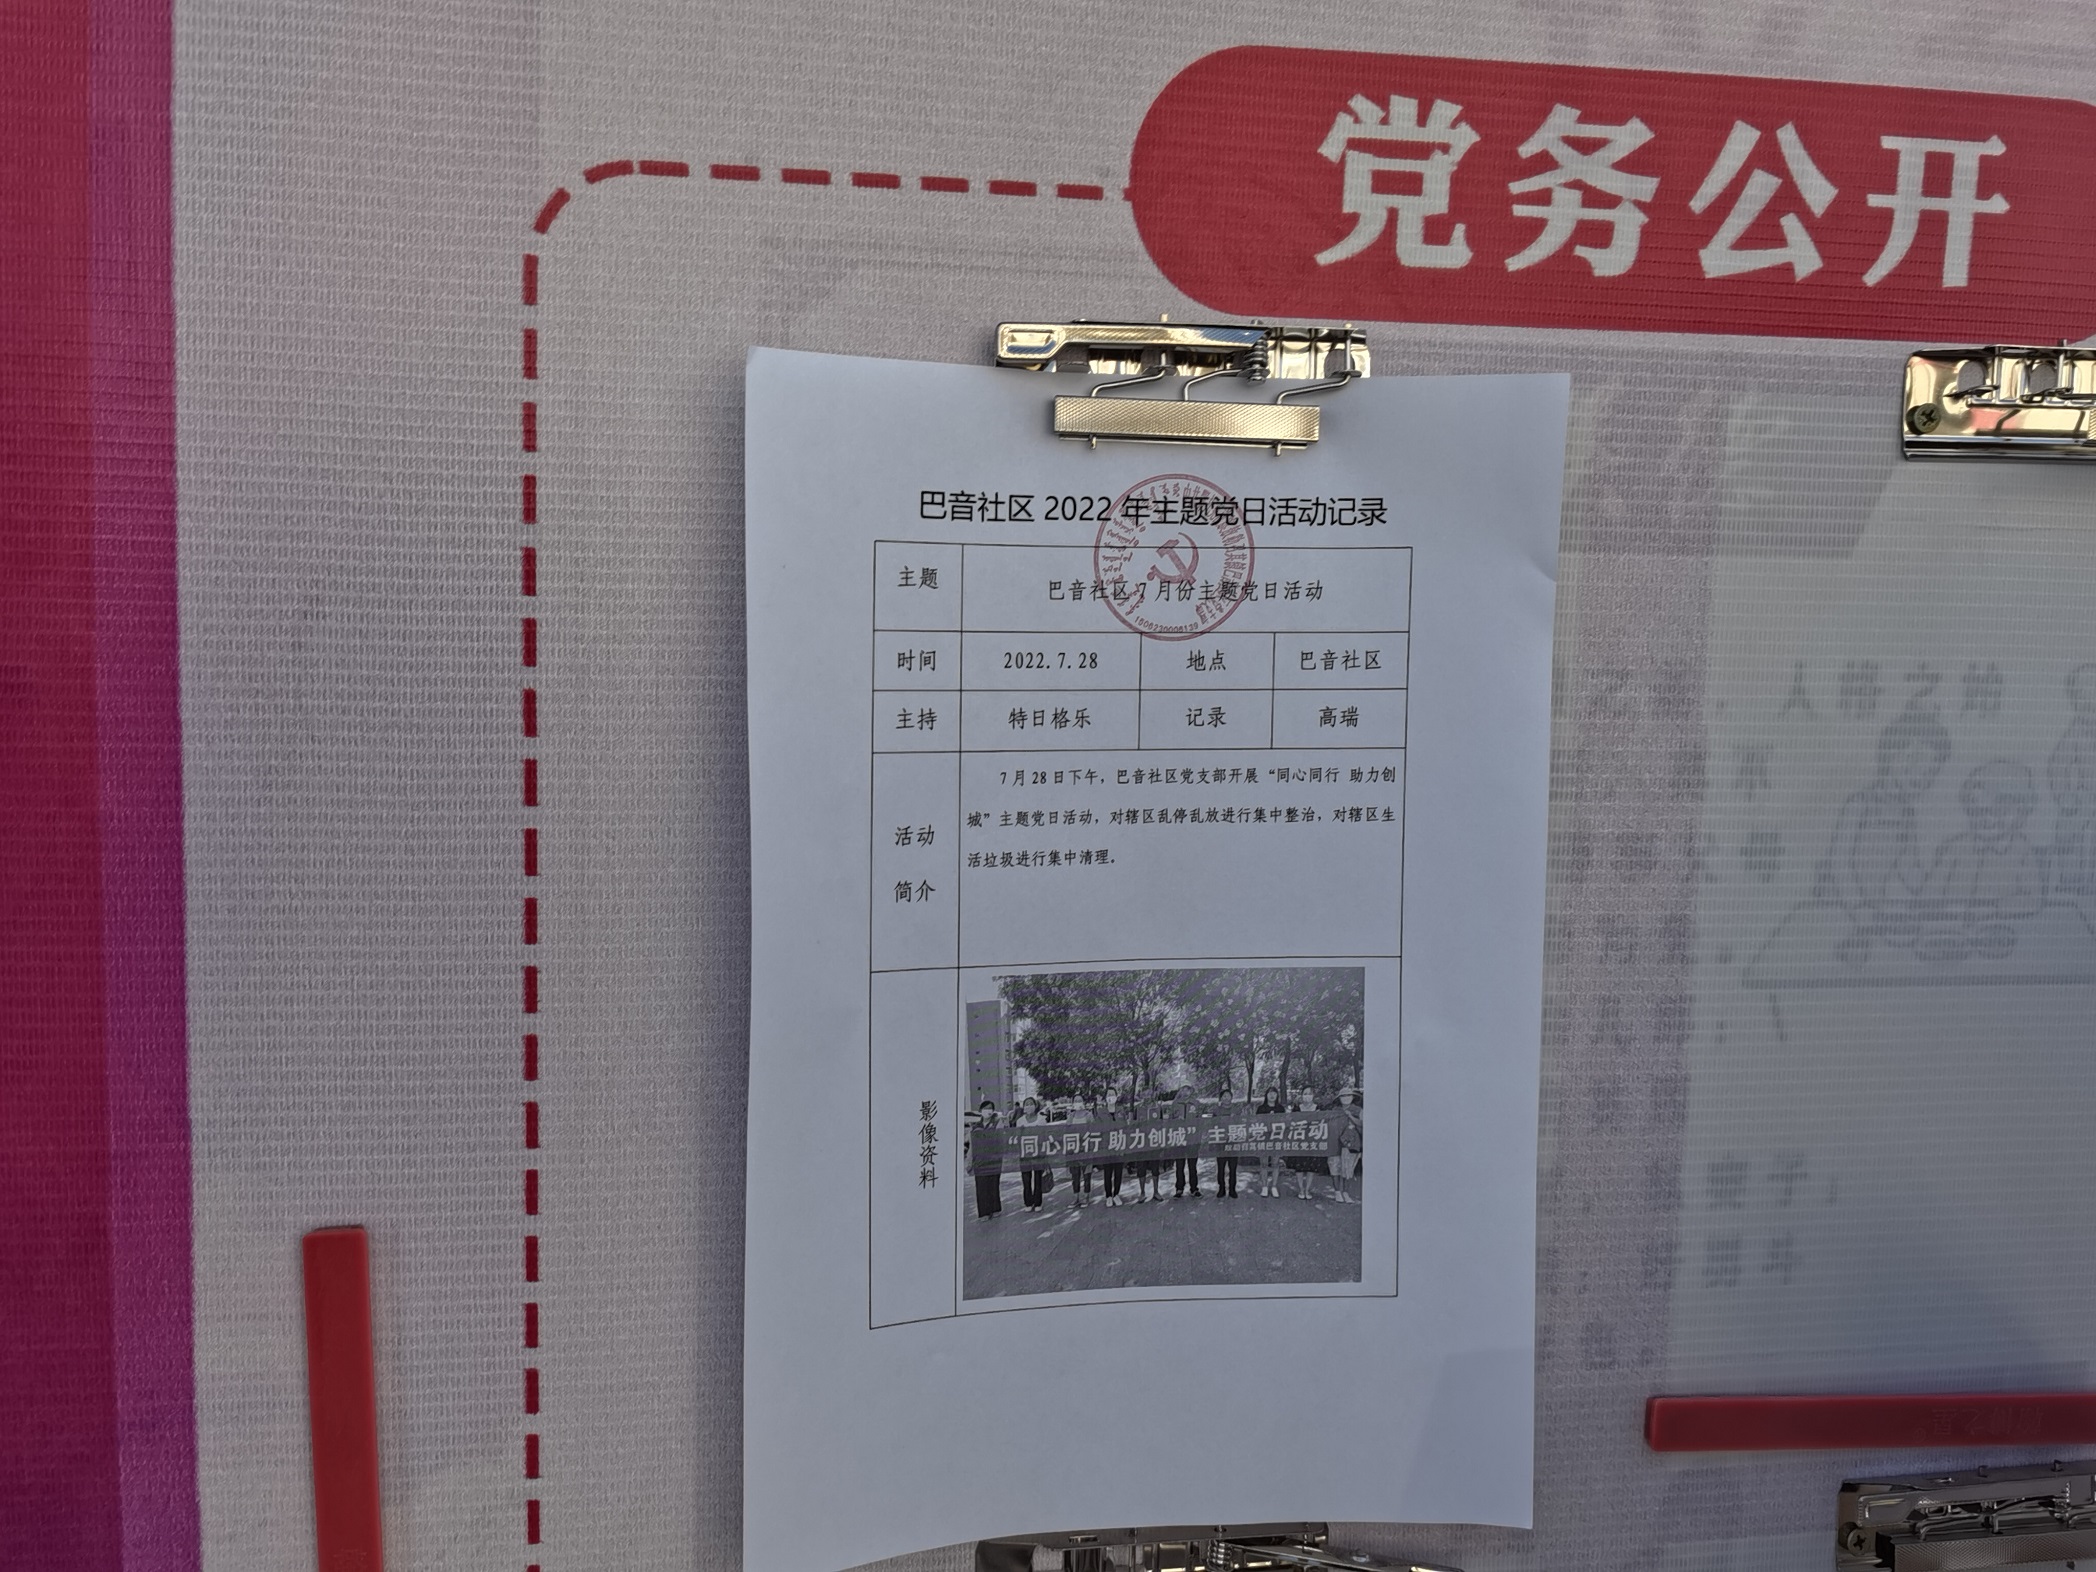 党务公开
巴音社区 2022 年主题党日活动记录
主题
巴音社区 7 月份主题党日活动
时间 2022.7.28 地点 巴音社区
主持 特日格乐 记录 高瑞
活动
简介
7 月 28 日下午，巴音社区党支部开展“同心同行 助力创
城”主题党日活动，对辖区乱停乱放进行集中整治，对辖区生
活垃圾进行集中清理。
影像资料
“同心同行 助力创城” 主题党日活动
巴音社区党支部